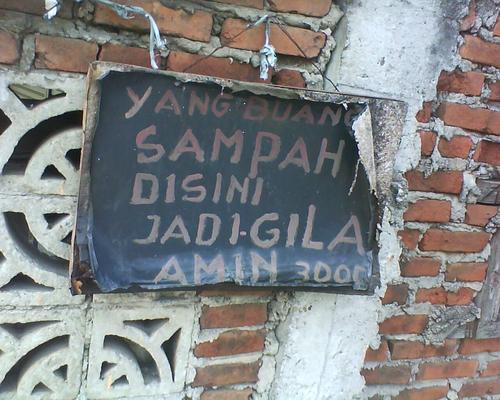 YANG BUANG
SAMPAH
DISINI
JADI-GILA
AMIN 300X